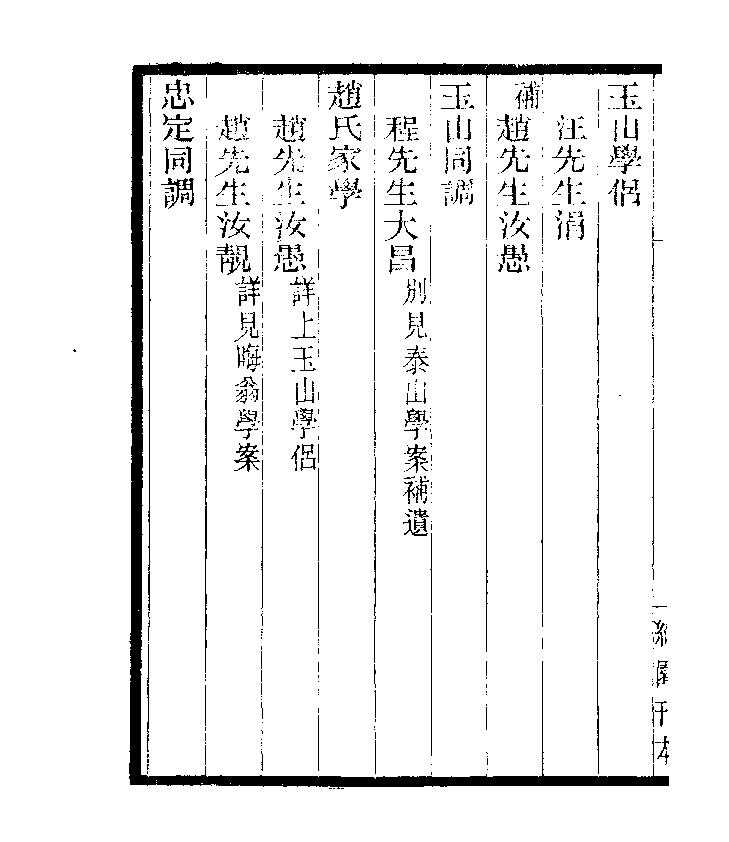 玉山學侶
汪先生涓
補趙先生汝愚
玉山同調
程先生大昌別見泰山學案補遺
趙氏家學
趙先生汝愚詳上玉山學侶
趙先生汝靚詳見晦翁學案
忠定同調
刊本